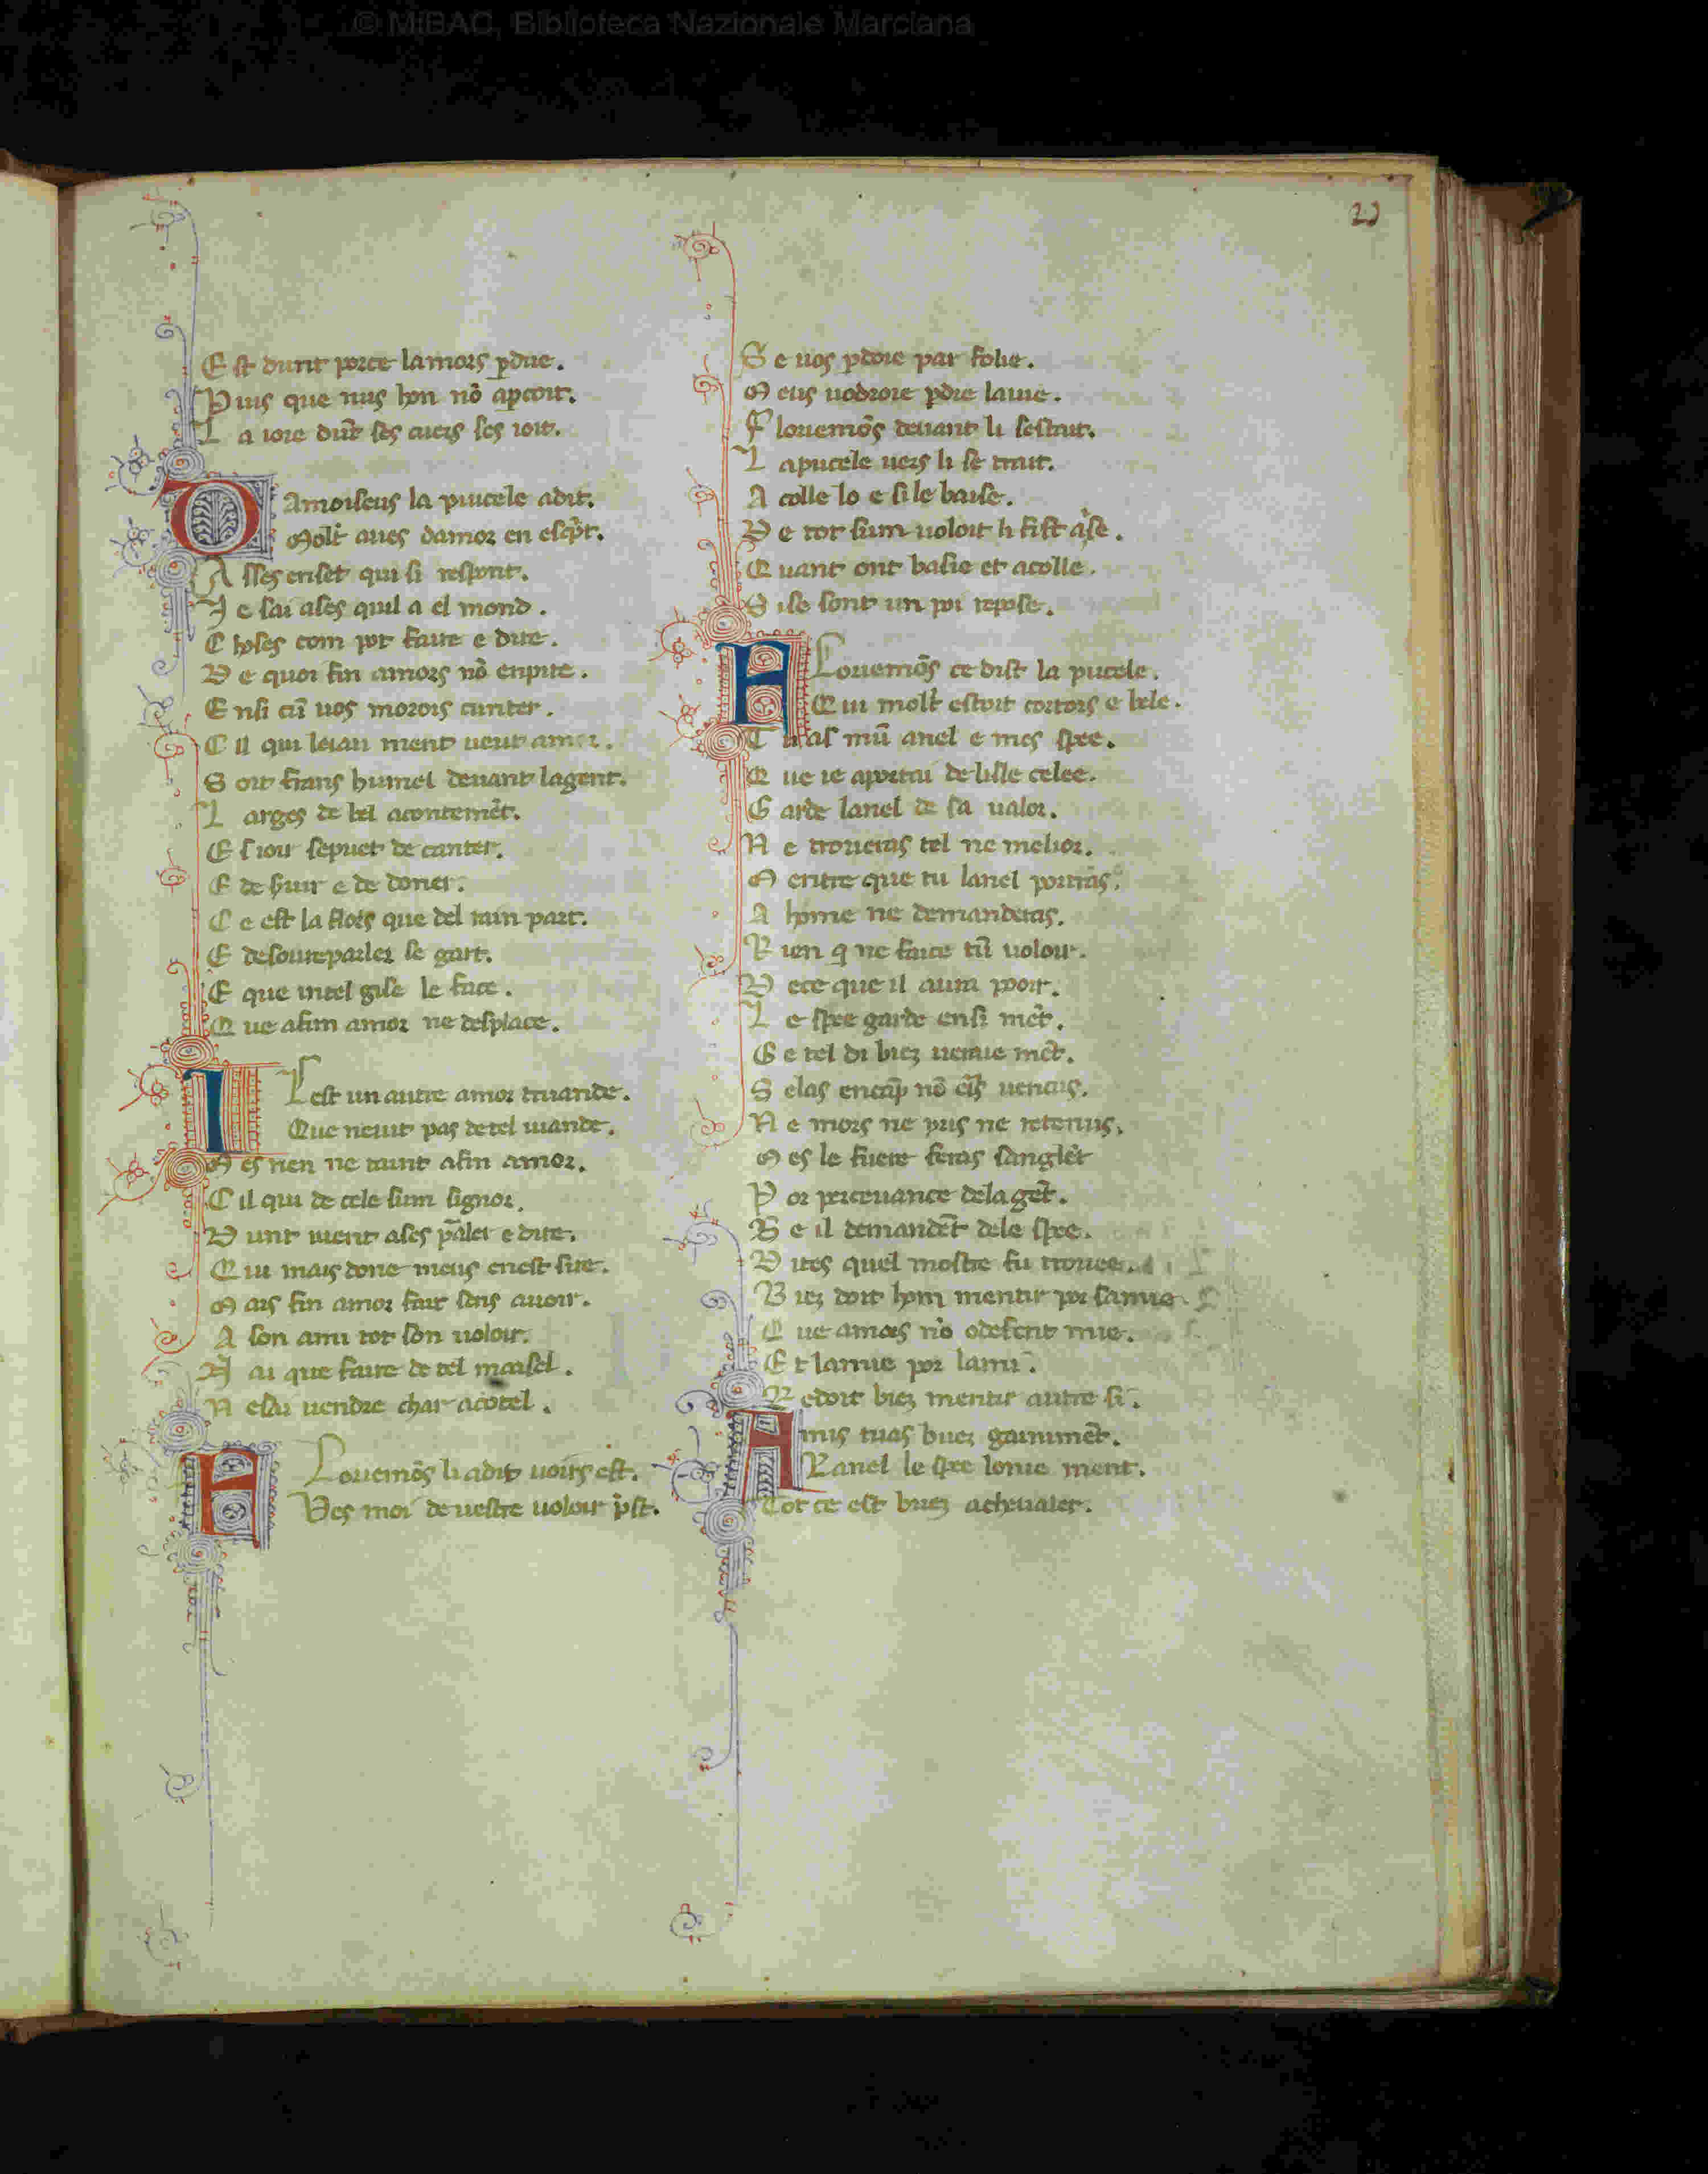 © MiBAC, Biblioteca Nazionale Marciana
22
E st dunt porce lamors ꝑdue.
P uis que nus hon nō aꝑcoit.
L a ioie dūt ses cuers ses ioit.
D amoiseus la pincele adit.
Molt aues damor en escͥpt.
A sses enset qui si respont.
J e sai ases quil a el mond.
C hoses com pot faire e dire.
D e quoi fin amors nō enpire.
E nsi cū uos morois cunter.
C il qui leiau ment ueut amer.
S oit frans humel deuant lagent.
L arges de bel acontemēt.
E s ioir sepuet de canter.
E de suir e de doner.
C e est la flors que del rain part.
E desoutreparler se gart.
E que intel gise le face.
Q ue afim amor ne desplace.
I L est un autre amor truande.
Que neuit pas detel uiande.
M es nen ne taint afin amor.
C il qui de cele sum signor.
D unt uient ases ꝑaler e dire.
Q ui mais done meus enest sire.
M ais fin amor fait sens auoir.
A son ami tot son uoloir.
N ai que faire de tel maisel.
N esai uendre char acotel.
F Louemōs li adit uoirs est.
Ves moi de uestre uoloir pͥst.
S e uos ꝑdoie par folie.
M eus uodroie ꝑdre lauie.
F louemōs deuant li sestait.
L apucele uers li se trait.
A colle lo e si le baise.
D e tot sum uoloir li fist aͥse.
Q uant ont basie et acolle.
S i se sont un poi repose.
F Louemōs ce dist la pucele.
Qui molt estoit cortois e bele.
T u as mū anel e mes spee.
Q ue ie aportai de lille celee.
G arde lanel de sa ualor.
N e troueras tel ne melior.
M entre que tu lanel portras.
A home ne demanderas.
R ien q ne face tū uoloir.
D ece que il aura pooir.
L e spee garde ensi mēt.
G e tel di biez ueraie mēt.
S elas encāp nō eͥs uencus.
N e mors ne pris ne retenus.
M es le fuere feras sanglēt
P or perceuance delagēt.
S e il demandēt dele spee.
D ites quel mostre fu trouee.
B iez doit hom mentir por samie.
Q ue amors nō odefent mie.
E t lamie por lami.
R edoit biez mentir autre si.
A mis tuas buez garnimēt.
Lanel le spee lonie ment.
Tot ce est buez acheualer.